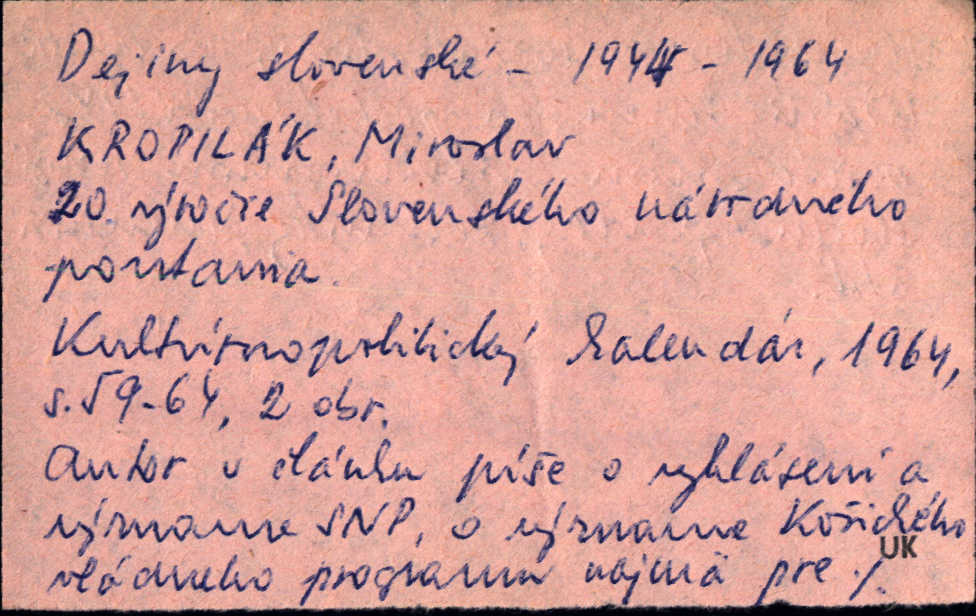 Dejiny slovenské - 1944 - 1964
KROPILÁK, Miroslav
20. výročie Slovenského národného
povstania.
Kultúrnopolitický kalendár, 1964,
s. 59-64, 2 obr.
Autor v článku píše o vyhlásení a
význame SNP, o význame Košického
vládneho programu najmä pre ./.
UK